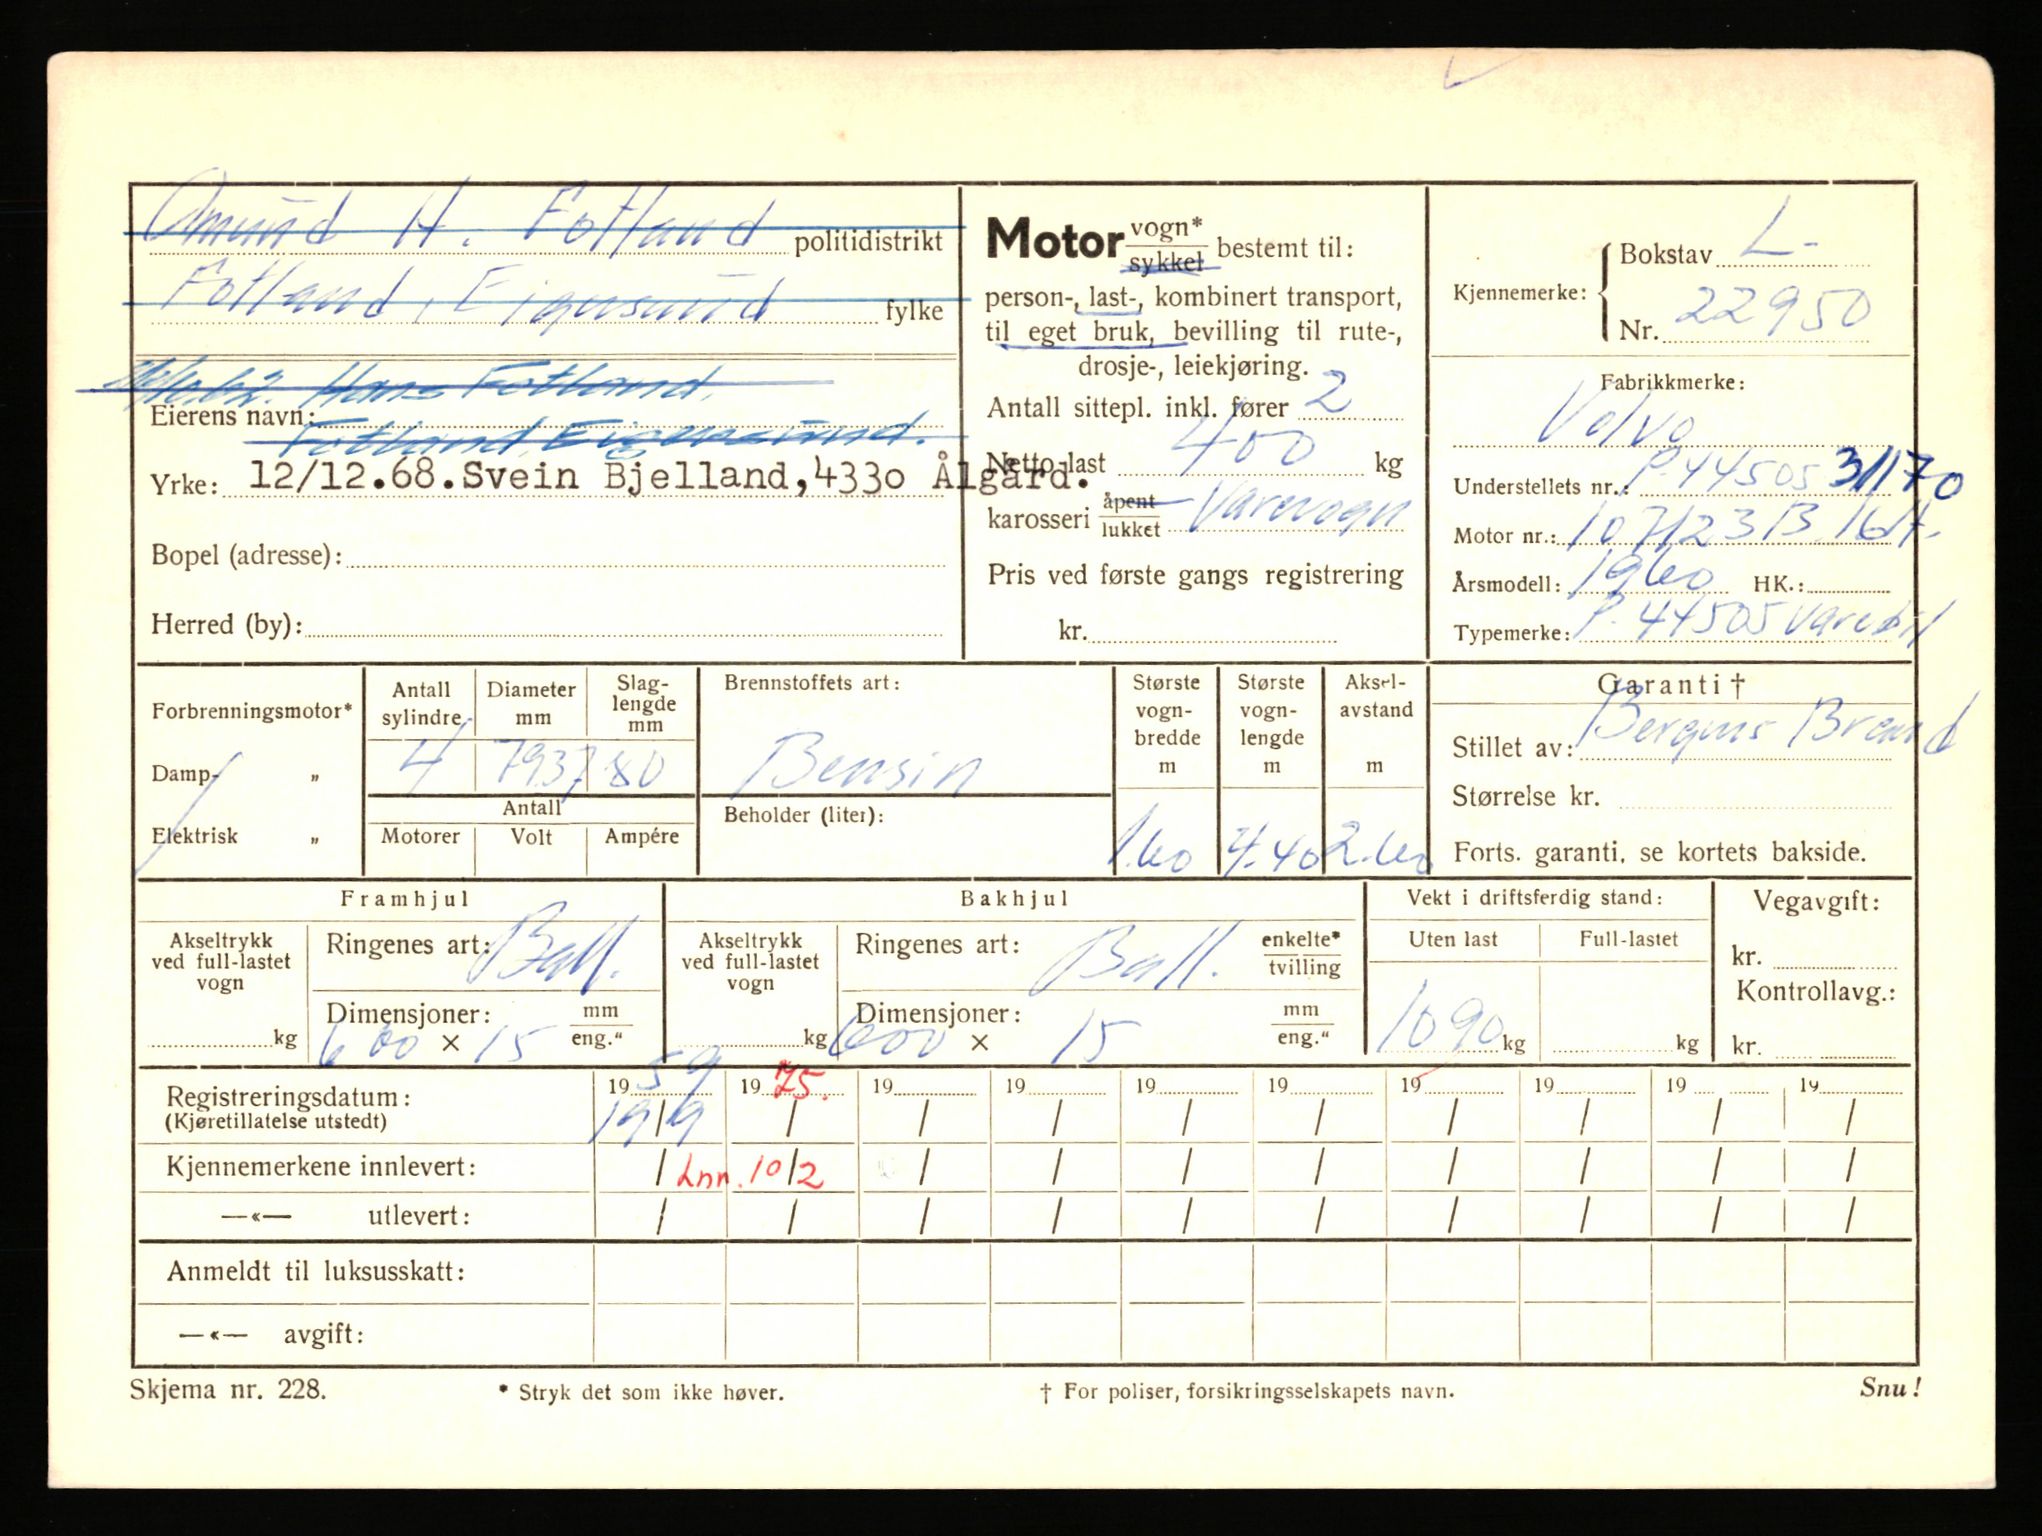 Amund H. Fotland politidistrikt
Fotland, Eigersund fylke
Hans Fotland.
Eierens navn:
Fotland, Eigersund.
Yrke: 12/12.68. Svein Bjelland, 4330 Ålgård.
Bopel (adresse):
Herred (by):
Motor vogn* sykkel bestemt til:
person-, last-, kombinert transport,
til eget bruk, bevilling til rute-,
drosje-, leiekjøring.
Antall sittepl. inkl. fører 2
Netto last 400 kg
karosseri åpent lukket Varevogn
Pris ved første gangs registrering
kr.
Kjennemerke: Bokstav L-
Nr. 22950
Fabrikkmerke:
Volvo
Understellets nr.: P.44505 31170
Motor nr.: 107123 B. 16/7.
Årsmodell: 1960 HK.:
Typemerke: P. 44505 Varebil
Forbrenningsmotor*
Damp- „
Elektrisk „
Antall sylindre 4
Diameter mm 7937
Slag-lengde mm 80
Antall
Motorer Volt Ampére
Brennstoffets art:
Bensin
Beholder (liter):
Største vogn-bredde m 1.60
Største vogn-lengde m 4.40
Aksel-avstand m 2.60
Garanti †
Stillet av: Bergens Brand
Størrelse kr.
Forts. garanti, se kortets bakside.
Framhjul
Akseltrykk ved full-lastet vogn
kg
Ringenes art: Ball.
Dimensjoner: mm eng."
600 × 15
Bakhjul
Akseltrykk ved full-lastet vogn
kg
Ringenes art: Ball. enkelte* tvilling
Dimensjoner: mm eng."
600 × 15
Vekt i driftsferdig stand:
Uten last Full-lastet
1090 kg kg
Vegavgift:
kr.
Kontrollavg.:
kr.
Registreringsdatum: 19 59 19 75. 19 19 19 19 19 19 19 19
(Kjøretillatelse utstedt) 19/9 / / / / / / / / /
Kjennemerkene innlevert: / Inn. 10/2 / / / / / / / /
—«— utlevert: / / / / / / / / / /
Anmeldt til luksusskatt:
—«— avgift:
Skjema nr. 228. * Stryk det som ikke høver. † For poliser, forsikringsselskapets navn. Snu!